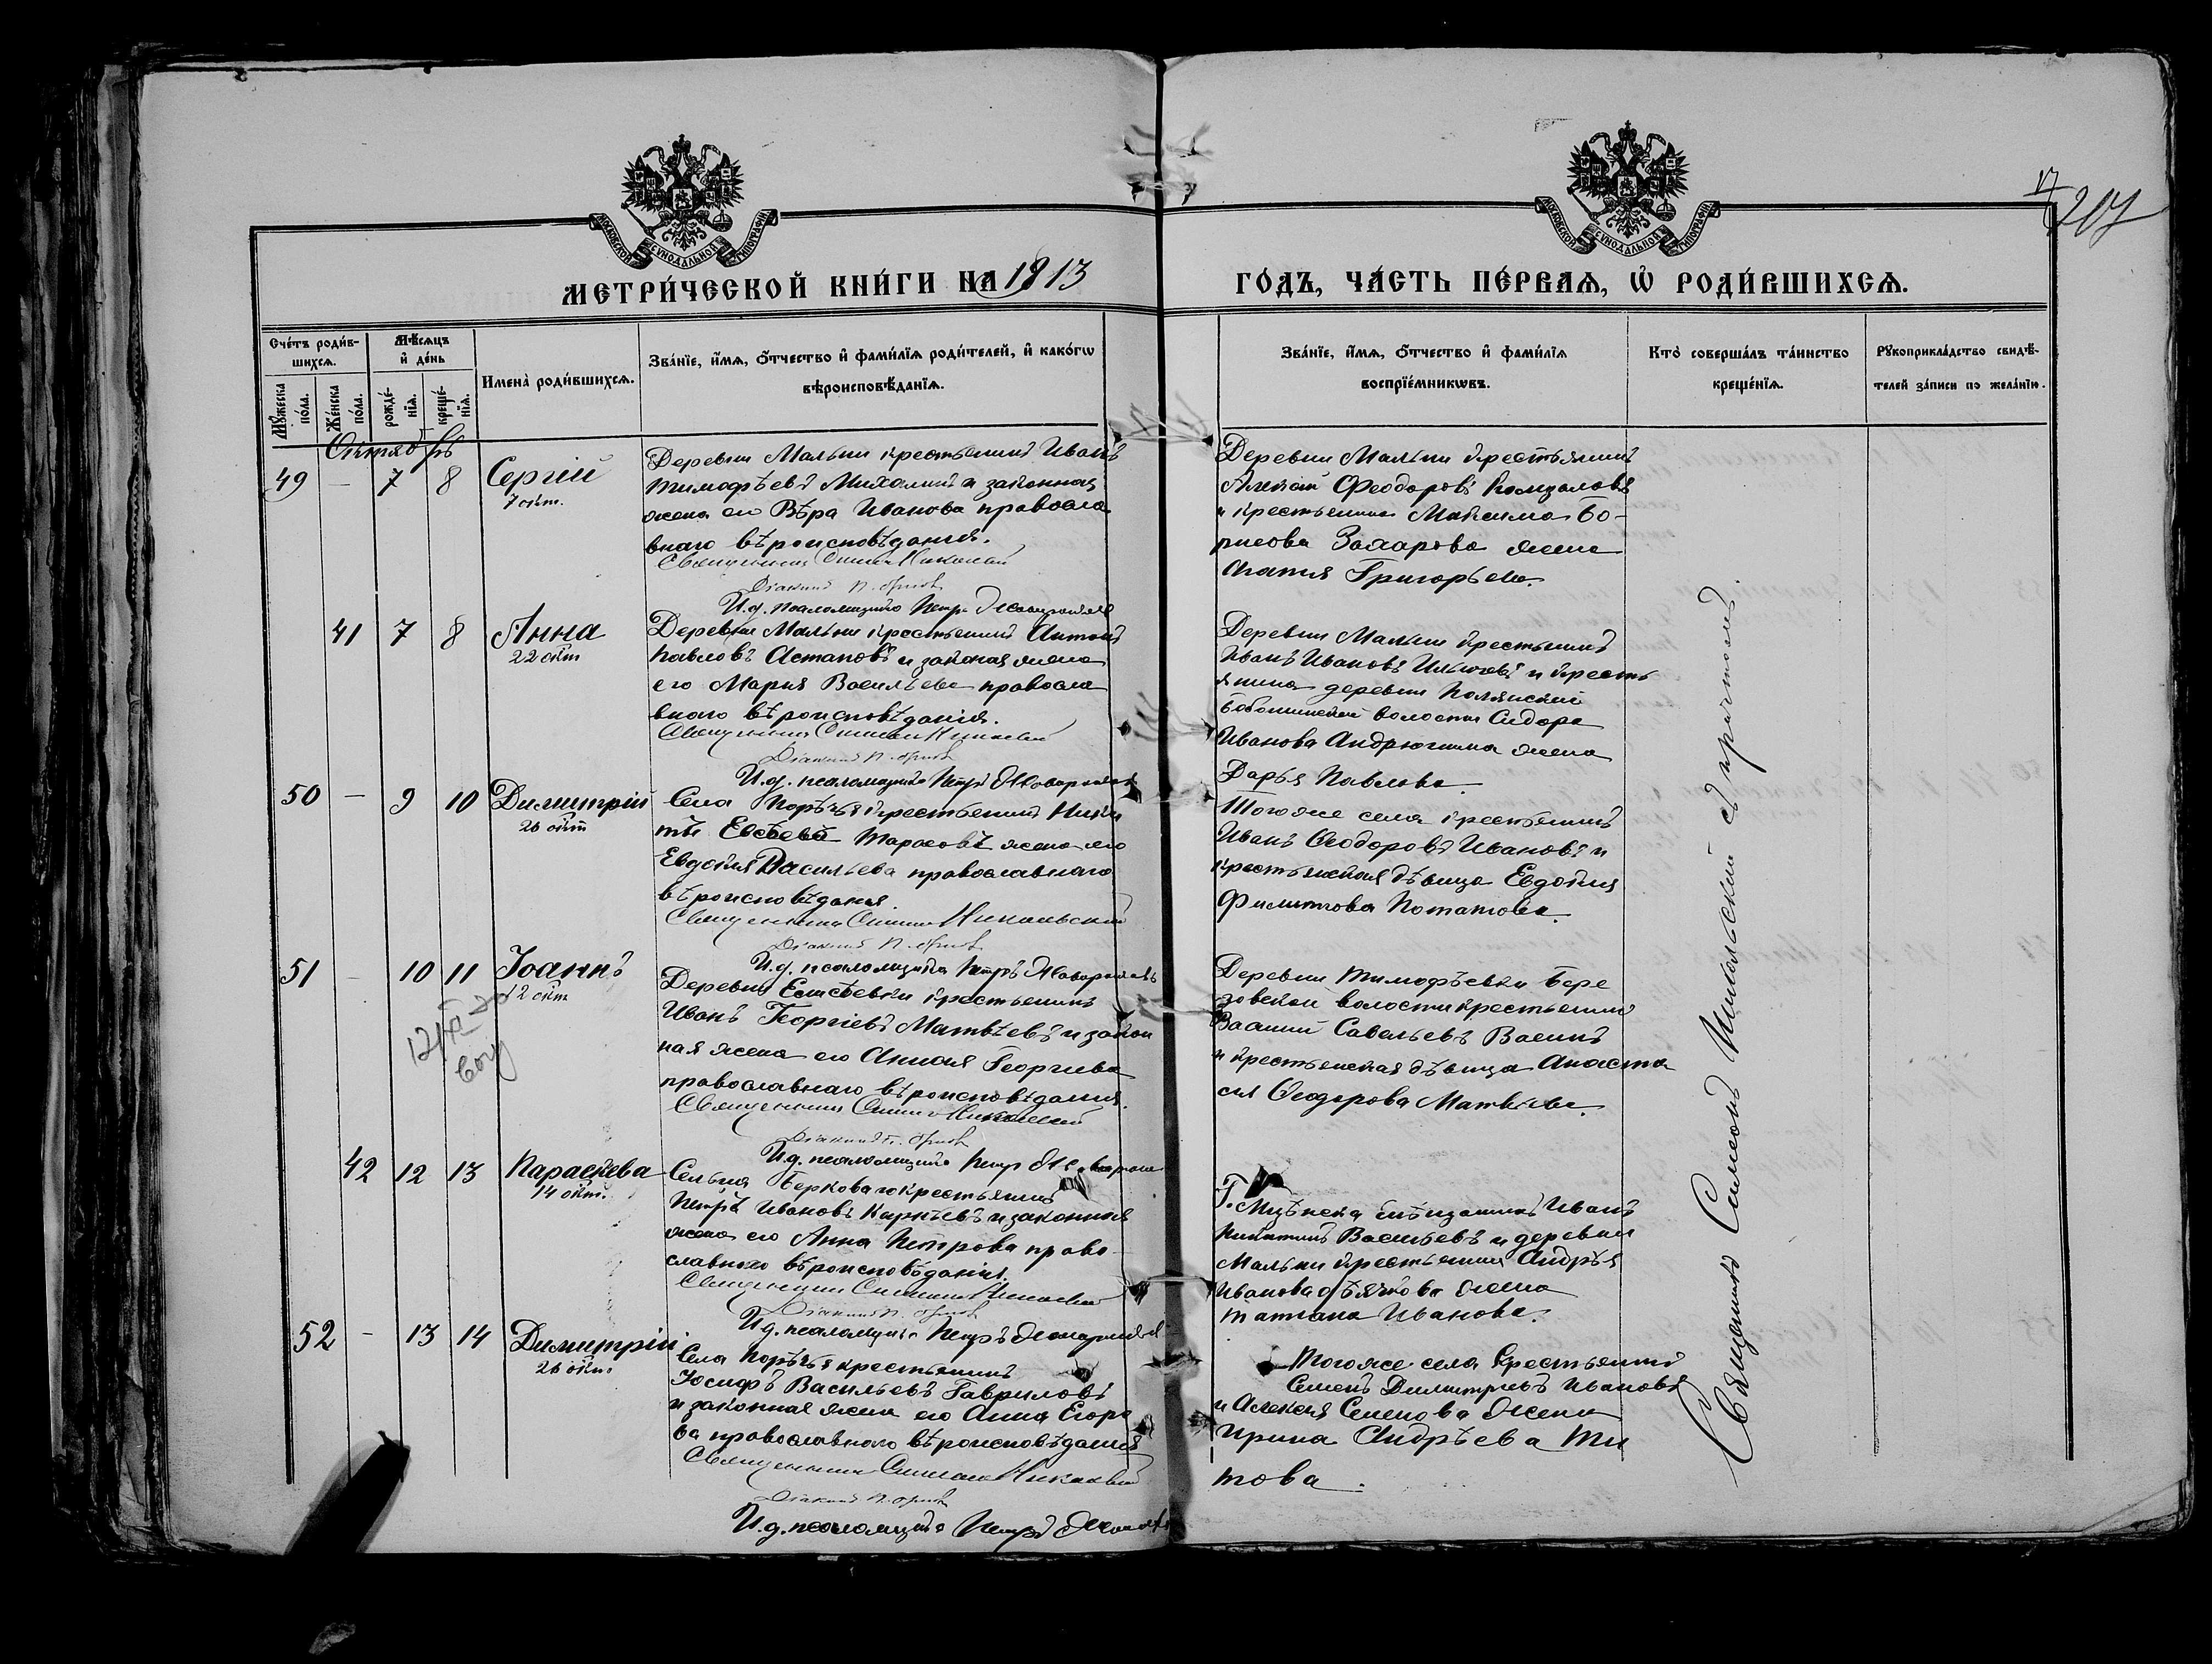 17
217
МОСКОВСКОЙ СѴНОДАЛЬНОЙ ТИПОГРАФІИ
МОСКОВСКОЙ СѴНОДАЛЬНОЙ ТИПОГРАФІИ
МЕТРИ́ЧЕСКОЙ КНИ́ГИ НА 1913
ГО́ДЪ, ЧА́СТЬ ПЕ́РВАѦ, Ѡ҆ РОДИ́ВШИХСѦ.
Сче́тъ роди́в-
шихсѧ.
Мѣ́сѧцъ
и҆ де́нь
Мꙋ́жеска
по́ла.
Же́нска
по́ла.
рожде́-
нїѧ.
креще́-
нїѧ.
Имена̀ роди́вшихсѧ.
Зва́нїе, и҆́мѧ, ѻ҆́тчество и҆ фами́лїѧ роди́телей, и҆ како́гѡ
вѣроисповѣ́данїѧ.
Зва́нїе, и҆́мѧ, ѻ҆́тчество и҆ фами́лїѧ
воспрїе́мникѡвъ.
Кто̀ соверша́лъ та́инство
креще́нїѧ.
Рꙋкоприкла́дство свидѣ́-
телей за́писи по жела́нїю.
Октябрь
49 – 7 8 Сергій
7 окт.
Деревни Мальни крестьянинъ Иванъ
Тимофѣевъ и законная
жена его Вѣра Иванова правосла
внаго вѣроисповѣданія.
Священникъ Симеонъ Никольскій
Діаконъ П. Орловъ
И.д. псаломщика Петръ
Деревни Мальни крестьянинъ
Алексѣй Ѳеодоровъ
и крестьянина Максима Бо-
рисова Захарова жена
Агапія Григорьева.
41 7 8 Анна
22 окт
Деревни Мальни крестьянинъ Антонъ
Павловъ Астаповъ и законая жена
его Марія Васильева правосла
внаго вѣроисповѣданія.
Священникъ Симеонъ Никольскій
Діаконъ П. Орловъ
И.д. псаломщика Петръ
Деревни Мальни крестьянинъ
Иванъ Ивановъ и кресть
янина деревни
волости Сидора
Иванова Андрюшина жена
Дарья Павлова.
50 – 9 10 Димитрій
26 окт
Села Порѣчья крестьянинъ Ники
та Евсѣевъ Тарасовъ жена его
Евдокія Васильева православнаго
вѣроисповѣданія.
Священникъ Симеонъ Никольскій
Діаконъ П. Орловъ
И.д. псаломщика Петръ
Того же села крестьянинъ
Иванъ Ѳеодоровъ Ивановъ и
крестьянская дѣвица Евдокія
Филиппова Потапова.
51 – 10 11 Іоаннъ
12 окт
Деревни Елисѣевки крестьянинъ
Иванъ Георгіевъ Матвѣевъ и закон
ная жена его Георгіева
православнаго вѣроисповѣданія.
Священникъ Симеонъ Никольскій
Діаконъ П. Орловъ
И.д. псаломщика Петръ
Деревни Тимофѣевки Бере
зовской волости крестьянинъ
Василій Савельевъ
и крестьянская дѣвица Анаста
сія Ѳеодорова Матвѣева.
42 12 13 Параскева
14 окт.
Сельца крестьянинъ
Петръ Ивановъ Карнѣевъ и законная
жена его Анна Петрова право
славнаго вѣроисповѣданія.
Священникъ Симеонъ Никольскій
Діаконъ П. Орловъ
И.д. псаломщика Петръ
Г. Мценска мѣщанинъ Иванъ
Никитинъ Васильевъ и деревни
Мальни крестьянина Андрея
Иванова жена
Татіана Иванова.
52 – 13 14 Димитрій
26 окт.
Села Порѣчья крестьянинъ
Іосифъ Васильевъ Гавриловъ
и законная жена его Анна Егоро
ва православнаго вѣроисповѣданія
Священникъ Симеонъ Никольскій
Діаконъ П. Орловъ
И.д. псаломщика Петръ
Того же села крестьянинъ
Семенъ Димитріевъ Ивановъ
и Алексѣя Семенова жена
Ирина Андрѣева Ти
това.
Священникъ Симеонъ Никольскій съ причтомъ.